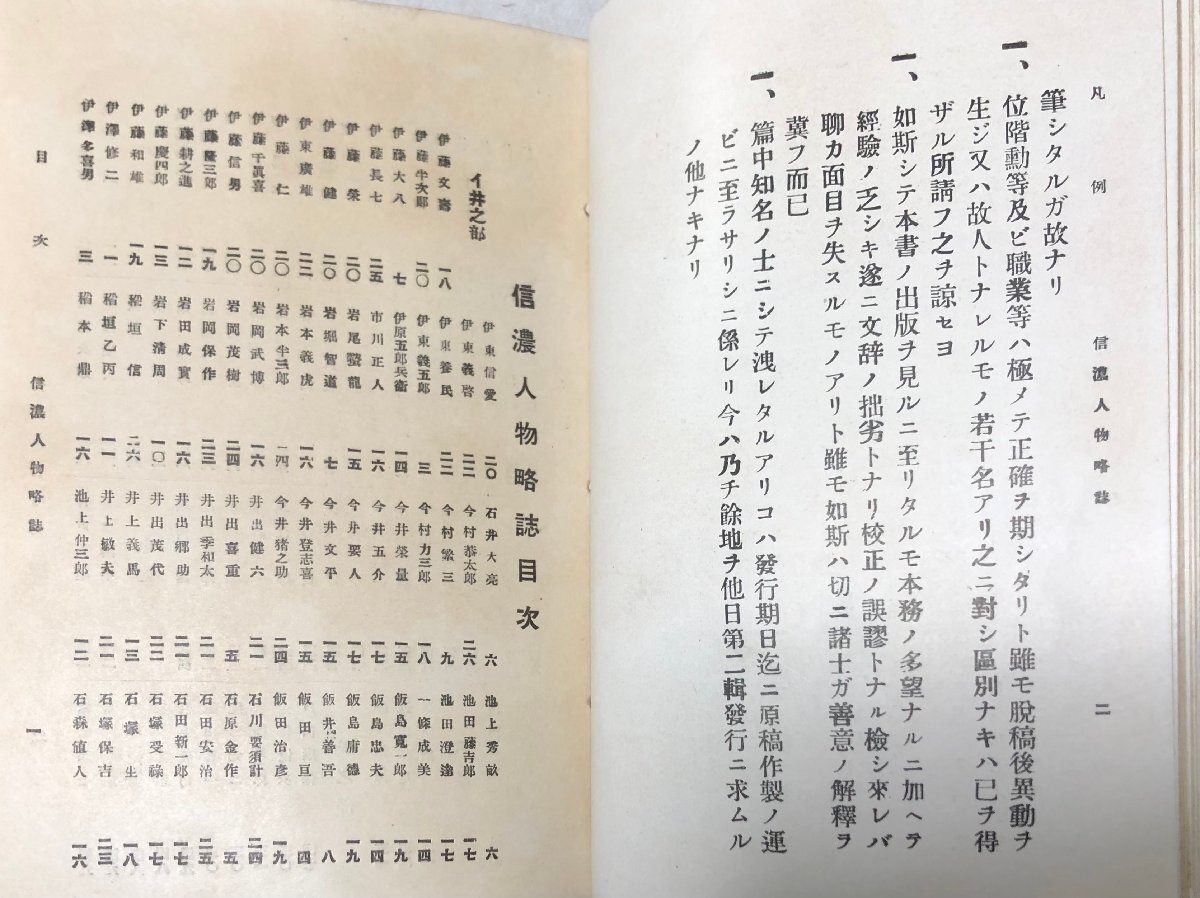 凡例 信濃人物略誌 二
筆シタルガ故ナリ
一、位階勳等及ビ職業等ハ極メテ正確ヲ期シタリト雖モ脱稿後異動ヲ
生ジ又ハ故人トナレルモノ若干名アリ之ニ對シ區別ナキハ已ヲ得
ザル所請フ之ヲ諒セヨ
一、如斯シテ本書ノ出版ヲ見ルニ至リタルモ本務ノ多望ナルニ加ヘテ
經驗ノ乏シキ遂ニ文辞ノ拙劣トナリ校正ノ誤謬トナル檢シ來レバ
聊カ面目ヲ失スルモノアリト雖モ如斯ハ切ニ諸士ガ善意ノ解釋ヲ
冀フ而已
一、篇中知名ノ士ニシテ洩レタルアリコハ發行期日迄ニ原稿作製ノ運
ビニ至ラサリシニ係レリ今ハ乃チ餘地ヲ他日第二輯發行ニ求ムル
ノ他ナキナリ
信濃人物略誌目次
イ井之部
伊藤文壽 一八
伊藤半次郎 二〇
伊藤大八 七
伊藤長七 二五
伊藤榮 二〇
伊藤健 二〇
伊東廣雄 二二
伊藤仁 二〇
伊藤千眞喜 二〇
伊藤信男 二〇
伊藤隆三郎 一九
伊藤耕之進 一二
伊藤慶四郎 一三
伊藤和雄 一九
伊澤修二 一
伊澤多喜男 三
伊東信愛 二〇
伊東義啓 二二
伊東養民 二二
伊東義五郎 三
伊原五郎兵衛 一四
市川正人 一六
岩尾螢龍 一五
岩堀智道 七
岩本義虎 一六
岩本半三郎 一四
岩岡武博 一六
岩岡茂樹 二四
岩岡保作 二三
岩田成實 一六
岩下清周 一〇
稻垣信 二六
稻垣乙丙 一一
稻本鼎 一六
石井大亮 六
今村恭太郎 二六
今村繁三 九
今村力三郎 一八
今井榮量 一五
今井五介 一七
今井要人 一七
今井文平 一五
今井登志喜 一五
今井猪之助 二四
井出健六 二一
井出喜重 五
井出季和太 二一
井出郷助 二一
井出茂代 二二
井上義馬 一三
井上敏夫 二一
池上仲三郎 一二
池上秀畝 六
池田藤吉郎 一七
池田澄達 一七
一條成美 一四
飯島寛一郎 一九
飯島忠夫 一四
飯島庸德 一九
飯井善吾 八
飯田亘 一四
飯田治彦 一九
石川要須計 二四
石原金作 五
石田安治 二五
石田新一郎 一七
石塚受祿 一七
石塚生 一八
石塚保吉 二三
石森値人 一六
目次 信濃人物略誌 一